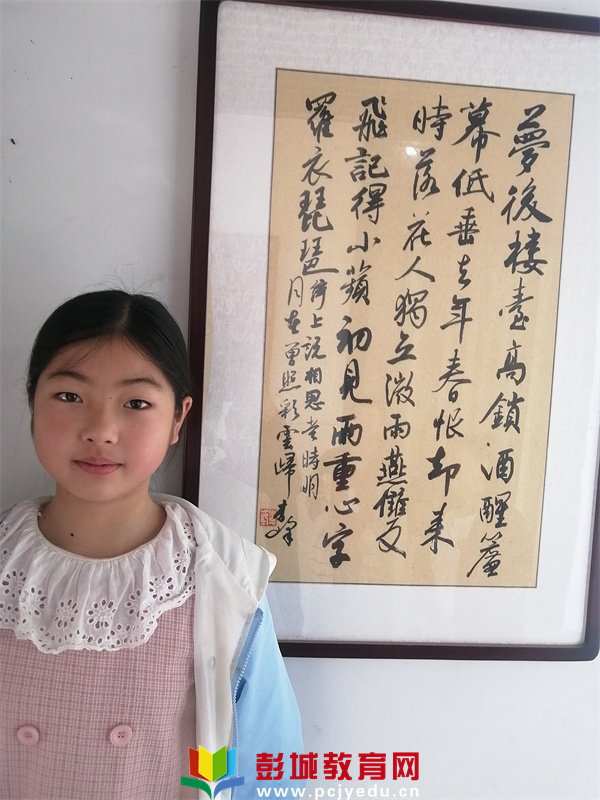 夢後樓臺高鎖酒醒簾
幕低垂去年春恨却来
時落花人獨立微雨燕雙
飛記得小蘋初見兩重心字
羅衣琵琶弦上說相思當時明
月在曾照彩雲歸
彭城教育网
www.pcjyedu.cn